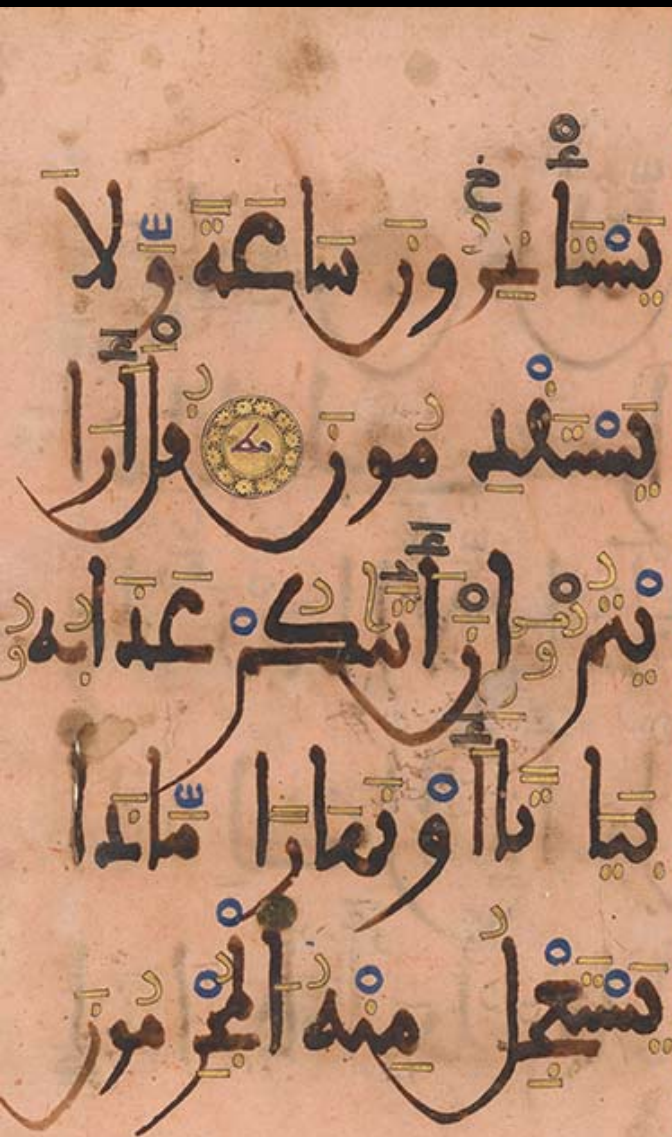 يَسْتَأْخِرُونَ سَاعَةً وَّلَا
يَسْتَقْدِمُونَ مط قُلْ أَرَا
يْتُمْ إِنْ أَتٰىكُمْ عَذَابُهُ
بَيَاتًا أَوْ نَهَارًا مَّاذَا
يَسْتَعْجِلُ مِنْهُ الْمُجْرِمُونَ